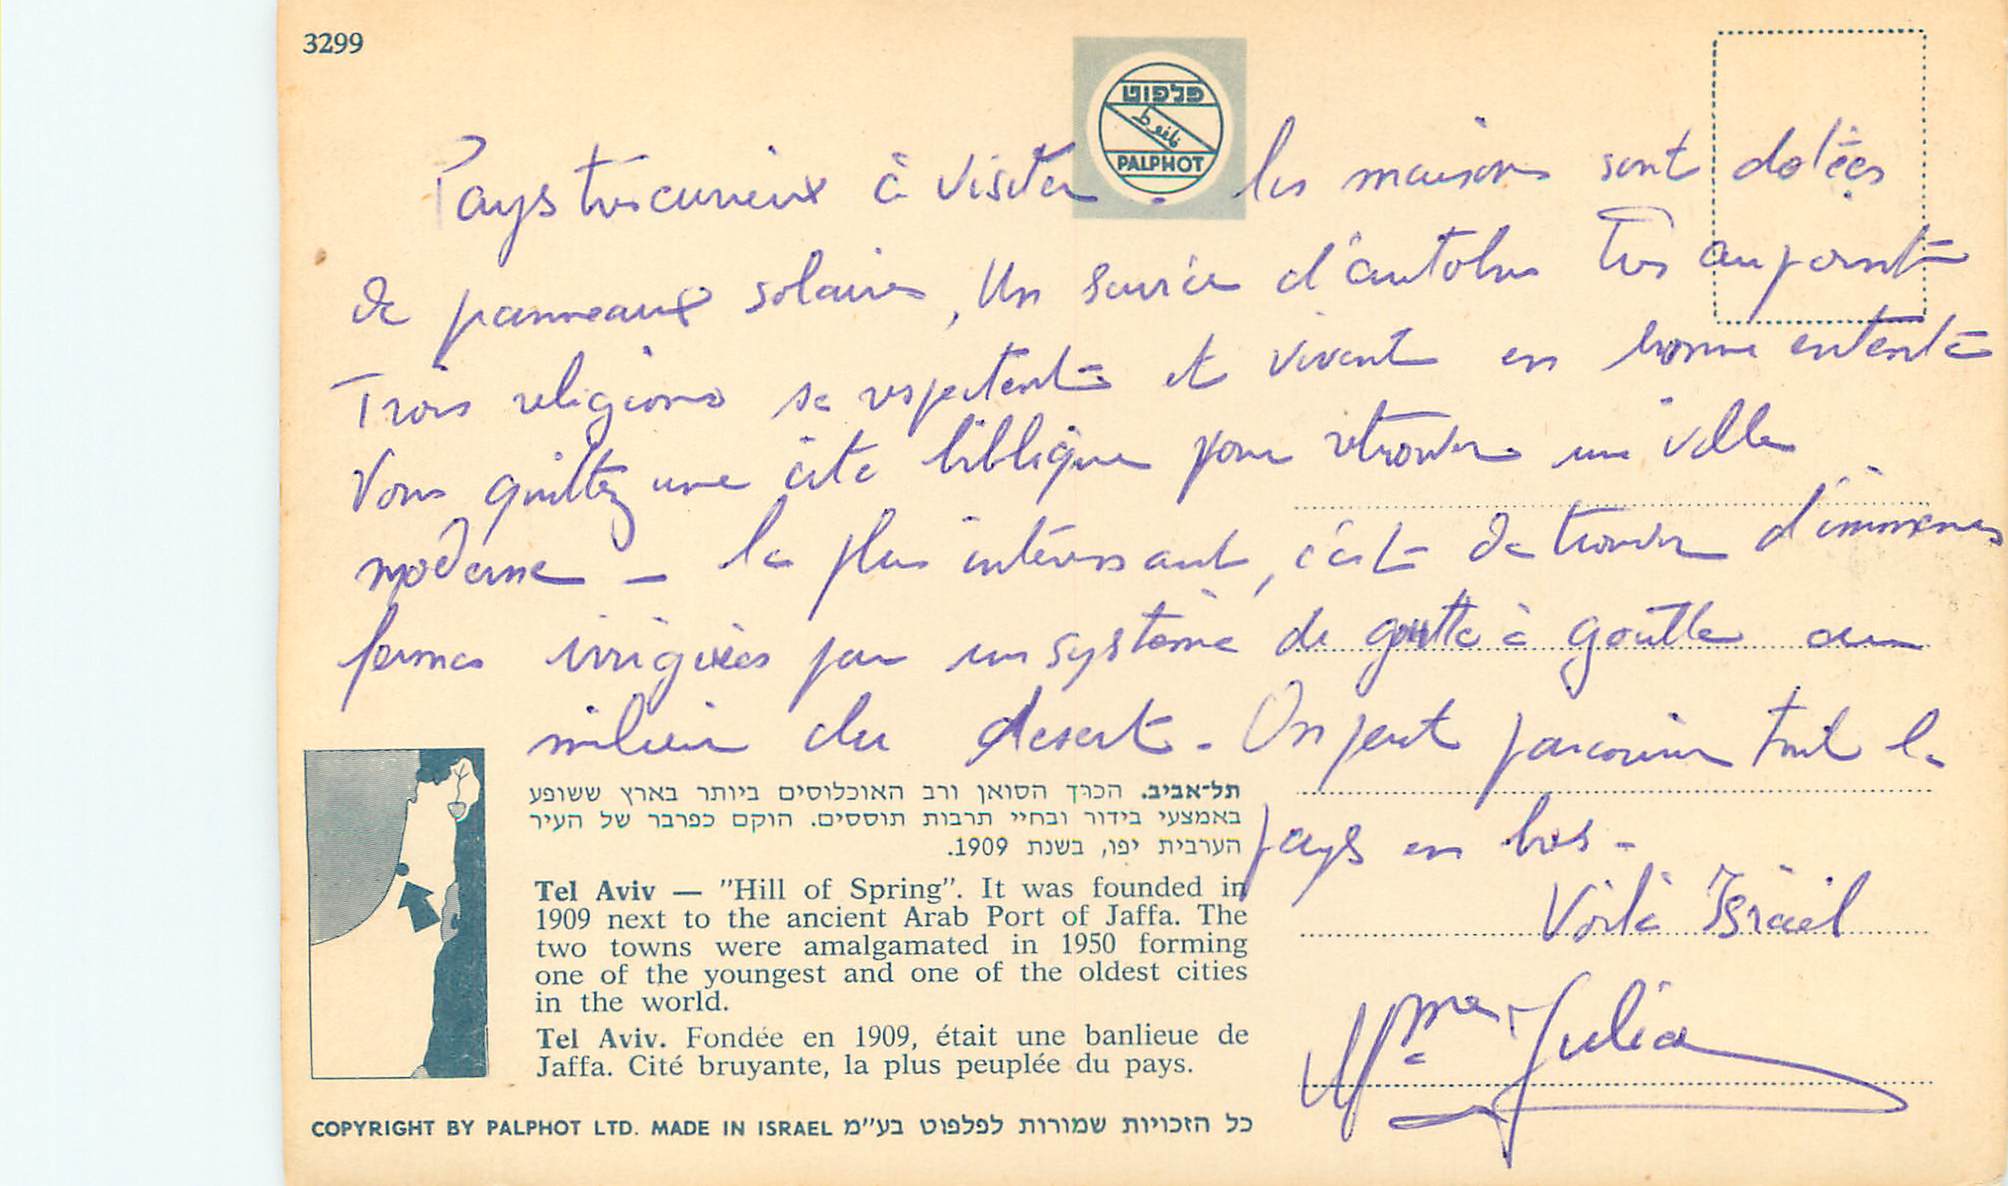 3299
פלפוט
Palphot
PALPHOT
Pays très curieux à visiter. les maisons sont dotées
de panneaux solaires, Un service d'autobus Très au point
Trois religions se respectent et vivent en bonne entente
Vous quittez une cité biblique pour retrouver une ville
moderne - le plus intéressant, c'est de trouver d'immenses
fermes irriguées par un système de goutte à goutte au
milieu du desert. On peut parcourir tout le
pays en bus -
Voilà Israël
Mme Julia
תל־אביב. הכרך הסואן ורב האוכלוסים ביותר בארץ ששופע
באמצעי בידור ובחיי תרבות תוססים. הוקם כפרבר של העיר
הערבית יפו, בשנת 1909.
Tel Aviv — "Hill of Spring". It was founded in
1909 next to the ancient Arab Port of Jaffa. The
two towns were amalgamated in 1950 forming
one of the youngest and one of the oldest cities
in the world.
Tel Aviv. Fondée en 1909, était une banlieue de
Jaffa. Cité bruyante, la plus peuplée du pays.
COPYRIGHT BY PALPHOT LTD. MADE IN ISRAEL כל הזכויות שמורות לפלפוט בע״מ